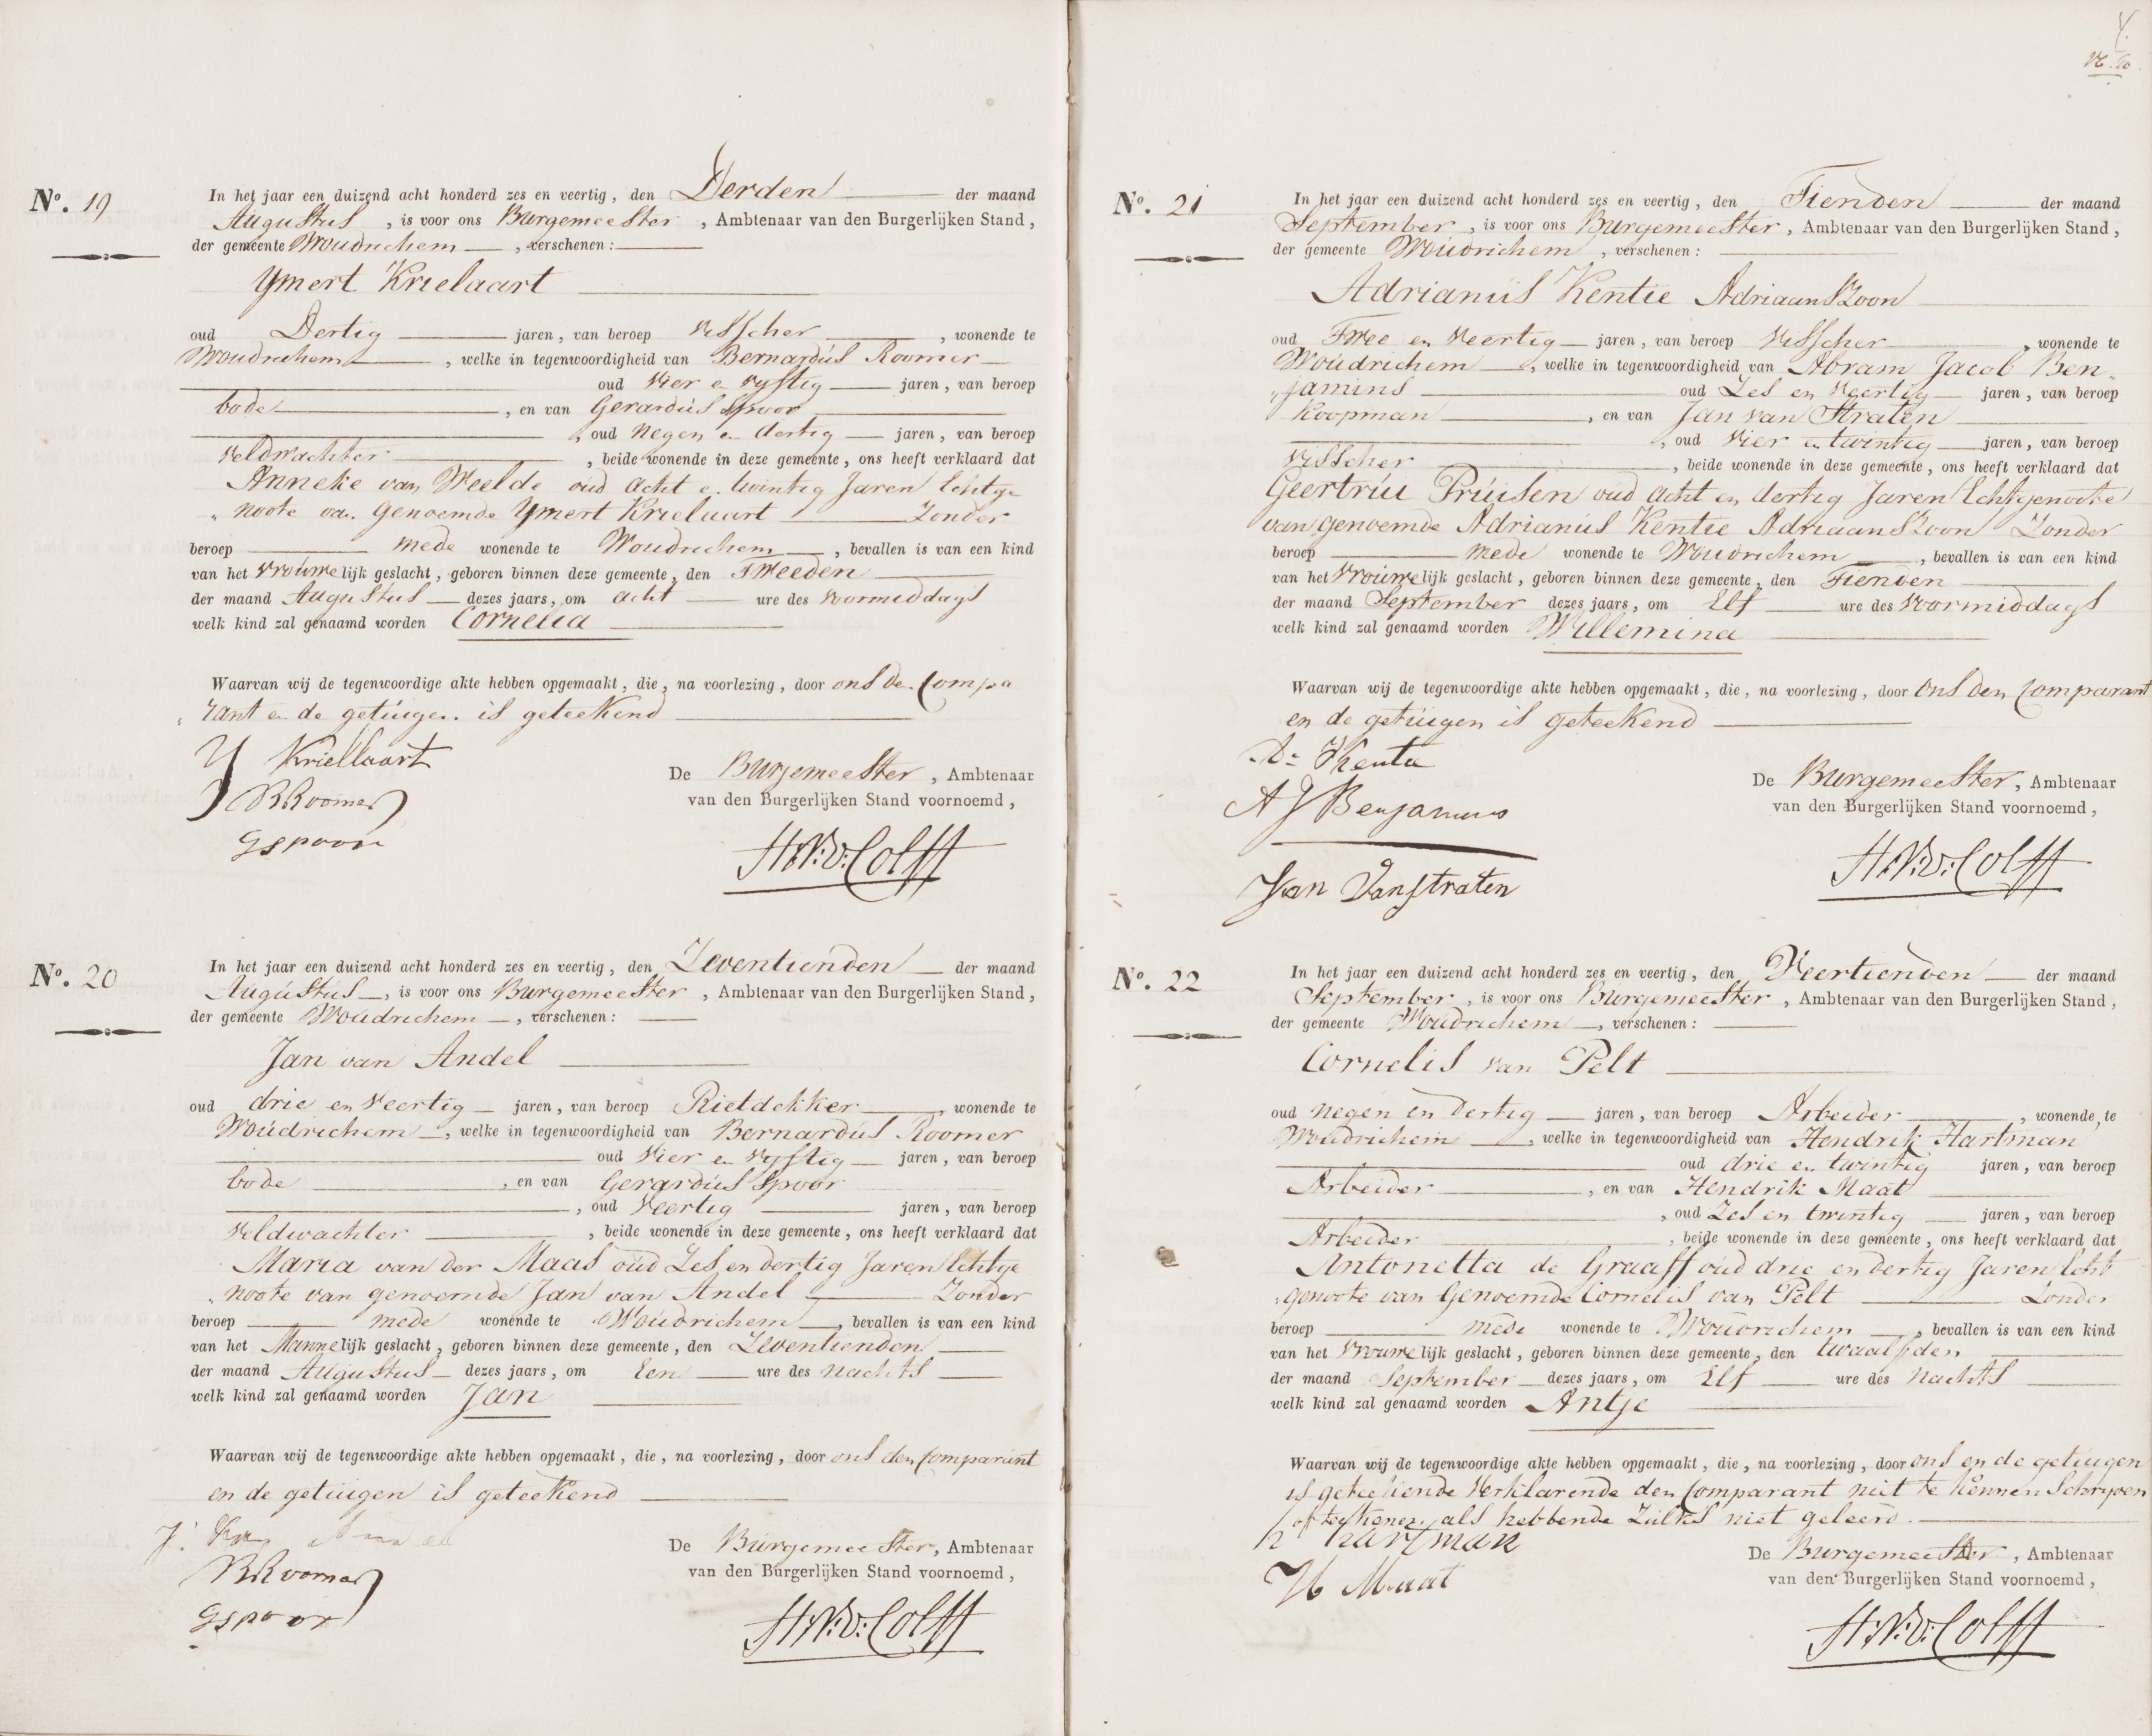 Nº. 19
In het jaar een duizend acht honderd zes en veertig, den Derden der maand
Augustus, is voor ons Burgemeester, Ambtenaar van den Burgerlijken Stand,
der gemeente Woudrichem, verschenen:
Ymert Krielaart
oud Dertig jaren, van beroep Visscher, wonende te
Woudrichem, welke in tegenwoordigheid van Bernardús Roomer
oud Vier en vyftig jaren, van beroep
bode, en van Gerardús Spoor
, oud Negen en dertig jaren, van beroep
Veldwachter, beide wonende in deze gemeente, ons heeft verklaard dat
Anneke van Weelde oúd acht en twintig Jaren Echtge
„noote van Genoemde Ymert Krielaart Zonder
beroep mede wonende te Woudrichem, bevallen is van een kind
van het Vrouwelijk geslacht, geboren binnen deze gemeente, den Tweeden
der maand Augustus dezes jaars, om acht ure des voormiddags
welk kind zal genaamd worden Cornelia
Waarvan wij de tegenwoordige akte hebben opgemaakt, die, na voorlezing, door ons de Compa
„rant en de getúigen is geteekend
Y Kriellaart
BRoomer
GSpoor
De Burgemeester, Ambtenaar
van den Burgerlijken Stand voornoemd,
H.N.v:Colff
Nº. 20
In het jaar een duizend acht honderd zes en veertig, den Zeventienden der maand
Augústus, is voor ons Burgemeester, Ambtenaar van den Burgerlijken Stand,
der gemeente Woúdrichem, verschenen:
Jan van Andel
oud drie en Veertig jaren, van beroep Rietdekker, wonende te
Woúdrichem, welke in tegenwoordigheid van Bernardús Roomer
oud Vier en Vyftig jaren, van beroep
bode, en van Gerardús Spoor
, oud Veertig jaren, van beroep
Veldwachter, beide wonende in deze gemeente, ons heeft verklaard dat
Maria van der Maas oúd Zes en dertig Jaren Echtge
„noote van genoemde Jan van Andel Zonder
beroep mede wonende te Woúdrichem, bevallen is van een kind
van het Mannelijk geslacht, geboren binnen deze gemeente, den Zeventienden
der maand Augustus dezes jaars, om Een ure des nachts
welk kind zal genaamd worden Jan
Waarvan wij de tegenwoordige akte hebben opgemaakt, die, na voorlezing, door ons den Comparant
en de getúigen is geteekend
J.
BRoomer
GSpoor
De Búrgemeester, Ambtenaar
van den Burgerlijken Stand voornoemd,
H.N.v:Colff
Nº. 21
In het jaar een duizend acht honderd zes en veertig, den Tienden der maand
September, is voor ons Burgemeester, Ambtenaar van den Burgerlijken Stand,
der gemeente Woúdrichem, verschenen:
Adrianús Kentie Adriaanszoon
oud Twee en Veertig jaren, van beroep Visscher, wonende te
Woúdrichem, welke in tegenwoordigheid van Abram Jacob Ben„
„jamins oud Zes en Veertig jaren, van beroep
Koopman, en van Jan van Straten
, oud Vier en twintig jaren, van beroep
Visscher, beide wonende in deze gemeente, ons heeft verklaard dat
Geertrúi Prúisen oud acht en dertig Jaren Echtgenoote
van genoemde Adrianús Kentie Adriaanszoon Zonder
beroep mede wonende te Woudrichem, bevallen is van een kind
van het Vroúwelijk geslacht, geboren binnen deze gemeente, den Tienden
der maand September dezes jaars, om Elf ure des voormiddags
welk kind zal genaamd worden Willemina
Waarvan wij de tegenwoordige akte hebben opgemaakt, die, na voorlezing, door ons den Comparant
en de getúigen is geteekend
A J Benjamins
Jan Vanstraten
De Burgemeester, Ambtenaar
van den Burgerlijken Stand voornoemd,
H.N.v:Colff
Nº. 22
In het jaar een duizend acht honderd zes en veertig, den Veertienden der maand
September, is voor ons Burgemeester, Ambtenaar van den Burgerlijken Stand,
der gemeente Woúdrichem, verschenen:
Cornelis van Pelt
oud negen en dertig jaren, van beroep Arbeider, wonende te
Woudrichem, welke in tegenwoordigheid van Hendrik Hartman
oud drie en twintig jaren, van beroep
Arbeider, en van Hendrik Maat
, oud Zes en twintig jaren, van beroep
Arbeider, beide wonende in deze gemeente, ons heeft verklaard dat
Antonetta de Graaff oúd drie en dertig Jaren Echt
„genoote van Genoemde Cornelis van Pelt Zonder
beroep mede wonende te Woúdrichem, bevallen is van een kind
van het Vrouwelijk geslacht, geboren binnen deze gemeente, den twaalfden
der maand September dezes jaars, om Elf ure des Nachts
welk kind zal genaamd worden Antje
Waarvan wij de tegenwoordige akte hebben opgemaakt, die, na voorlezing, door ons en de getúigen
is geteekende Verklarende den Comparant niet te kennen Schryven
of teekenen als hebbende Zúlks niet geleerd.
h hartman
H Maat
De Burgemeester, Ambtenaar
van den Burgerlijken Stand voornoemd,
H.N.v:Colff